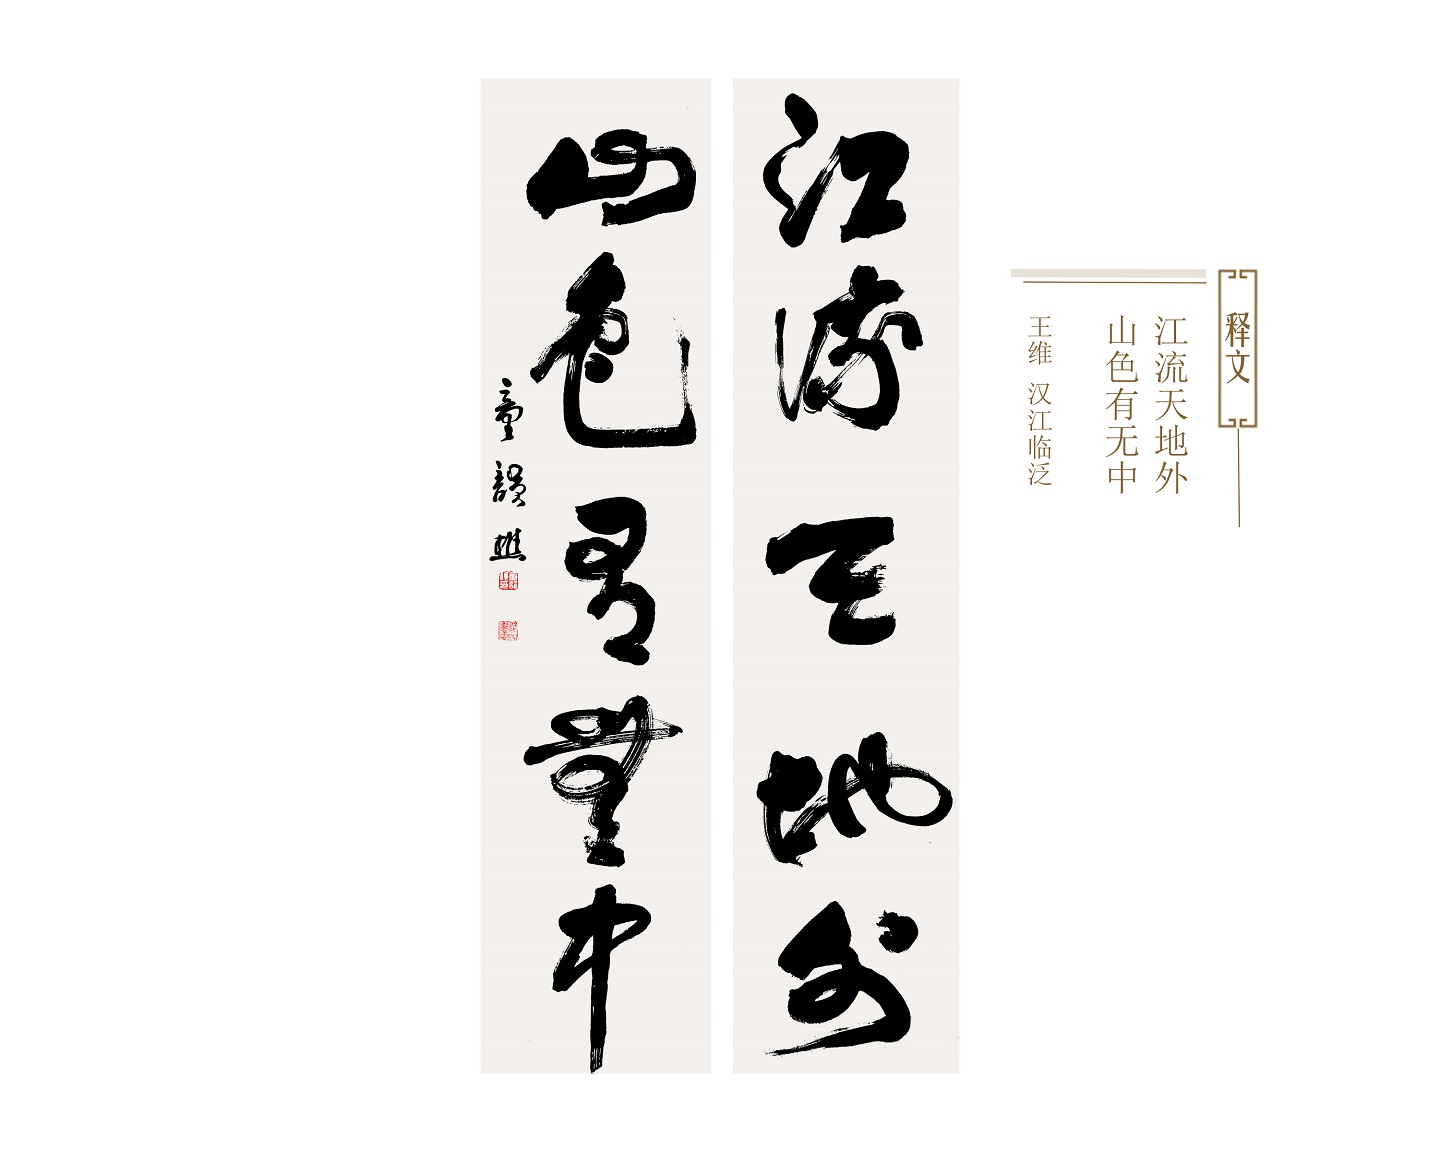 释文
江流天地外
山色有无中
王维 汉江临泛
江流天地外
山色有無中
童韻樵